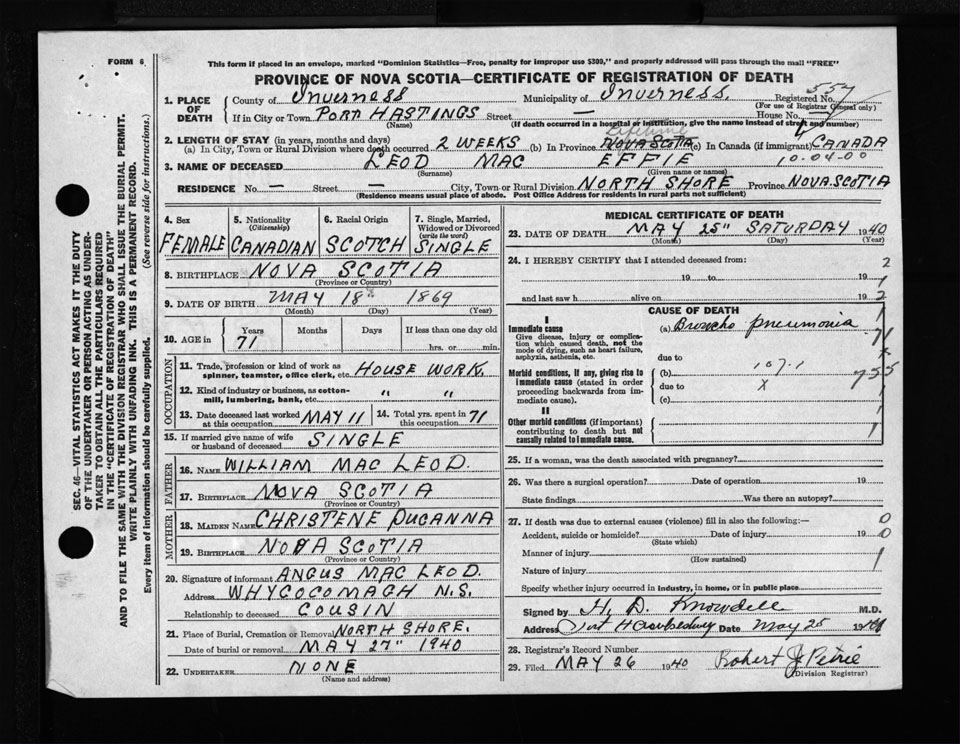 FORM 6
This form if placed in an envelope, marked "Dominion Statistics—Free, penalty for improper use $300," and properly addressed will pass through the mail "FREE"
PROVINCE OF NOVA SCOTIA—CERTIFICATE OF REGISTRATION OF DEATH
1. PLACE OF DEATH County of Inverness Municipality of Inverness. Registered No. 557
(For use of Registrar General only)
If in City or Town PORT HASTINGS Street — House No.
(Name) (If death occurred in a hospital or institution, give the name instead of street and number)
2. LENGTH OF STAY (in years, months and days) Lifetime
(a) In City, Town or Rural Division where death occurred 2 WEEKS (b) In Province NOVA SCOTIA (c) In Canada (if immigrant) CANADA
3. NAME OF DECEASED LEOD MAC EFFIE 10.04.00
(Surname) (Given name or names)
RESIDENCE No. — Street — City, Town or Rural Division NORTH SHORE Province NOVA SCOTIA
(Residence means usual place of abode. Post Office Address for residents in rural parts not sufficient)
4. Sex FEMALE
5. Nationality (Citizenship) CANADIAN
6. Racial Origin SCOTCH
7. Single, Married, Widowed or Divorced (write the word) SINGLE
8. BIRTHPLACE NOVA SCOTIA
(Province or Country)
9. DATE OF BIRTH MAY 18 1869
(Month) (Day) (Year)
10. AGE in Years Months Days If less than one day old
71 hrs. or min.
OCCUPATION
11. Trade, profession or kind of work as spinner, teamster, office clerk, etc. HOUSE WORK.
12. Kind of industry or business, as cotton-mill, lumbering, bank, etc. " "
13. Date deceased last worked at this occupation MAY 11
14. Total yrs. spent in this occupation 71
15. If married give name of wife or husband of deceased SINGLE
FATHER
16. NAME WILLIAM MAC LEOD.
17. BIRTHPLACE NOVA SCOTIA
MOTHER
18. MAIDEN NAME CHRISTENE DUCANNA
19. BIRTHPLACE NOVA SCOTIA
(Province or Country)
20. Signature of informant ANGUS MAC LEOD.
Address WHYCOCOMAGH N.S.
Relationship to deceased COUSIN
21. Place of Burial, Cremation or Removal NORTH SHORE.
Date of burial or removal MAY 27" 1940
22. UNDERTAKER NONE
(Name and address)
MEDICAL CERTIFICATE OF DEATH
23. DATE OF DEATH MAY 25" SATURDAY 1940
(Month) (Day) (Year)
24. I HEREBY CERTIFY that I attended deceased from: 2
19 to 19 1
and last saw h alive on 19 2
CAUSE OF DEATH
I
Immediate cause (a) Broncho pneumonia
Give disease, injury or complication which caused death, not the mode of dying, such as heart failure, asphyxia, asthenia, etc.
due to
Morbid conditions, if any, giving rise to immediate cause (stated in order proceeding backwards from immediate cause).
(b) 107.1
due to x
(c)
II
Other morbid conditions (if important) contributing to death but not causally related to immediate cause.
25. If a woman, was the death associated with pregnancy?
26. Was there a surgical operation? Date of operation 19
State findings Was there an autopsy?
27. If death was due to external causes (violence) fill in also the following:— 0
Accident, suicide or homicide? Date of injury 19 0
(State which)
Manner of injury 1
(How sustained)
Nature of injury
Specify whether injury occurred in industry, in home, or in public place
Signed by H. D. Knowdell M.D.
Address Port Hawkesbury Date May 25 19
28. Registrar's Record Number
29. Filed MAY 26 1940 Robert J Petrie
(Division Registrar)
SEC. 46—VITAL STATISTICS ACT MAKES IT THE DUTY
OF THE UNDERTAKER OR PERSON ACTING AS UNDER-
TAKER TO OBTAIN ALL THE PARTICULARS REQUIRED
IN THE "CERTIFICATE OF REGISTRATION OF DEATH"
AND TO FILE THE SAME WITH THE DIVISION REGISTRAR WHO SHALL ISSUE THE BURIAL PERMIT.
WRITE PLAINLY WITH UNFADING INK. THIS IS A PERMANENT RECORD.
Every item of information should be carefully supplied. (See reverse side for instructions.)